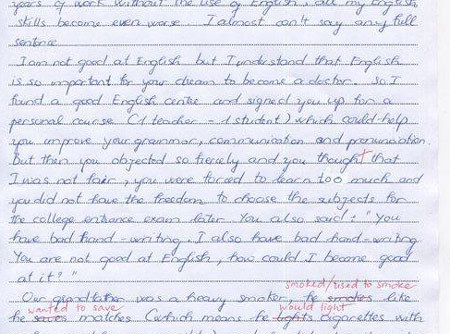 years of work without the use of English, all my English
skills become even worse. I almost can't say any full
sentence.
I am not good at English but I understand that English
is so important for your dream to become a doctor. So I
found a good English centre and signed you up for a
personal course (1 teacher - 1 student) which could help
you improve your grammar, communication and pronunciation.
But then you objected so fiercely and you thought that
I was not fair, you were forced to learn too much and
you did not have the freedom to choose the subjects for
the college entrance exam later. You also said: "You
have bad hand-writing. I also have bad hand-writing
You are not good at English, how could I become good
at it?"
smoked/used to smoke
Our grandfather was a heavy smoker, he smokes like
wanted to save would light
he saves matches (which means he lights cigarettes with